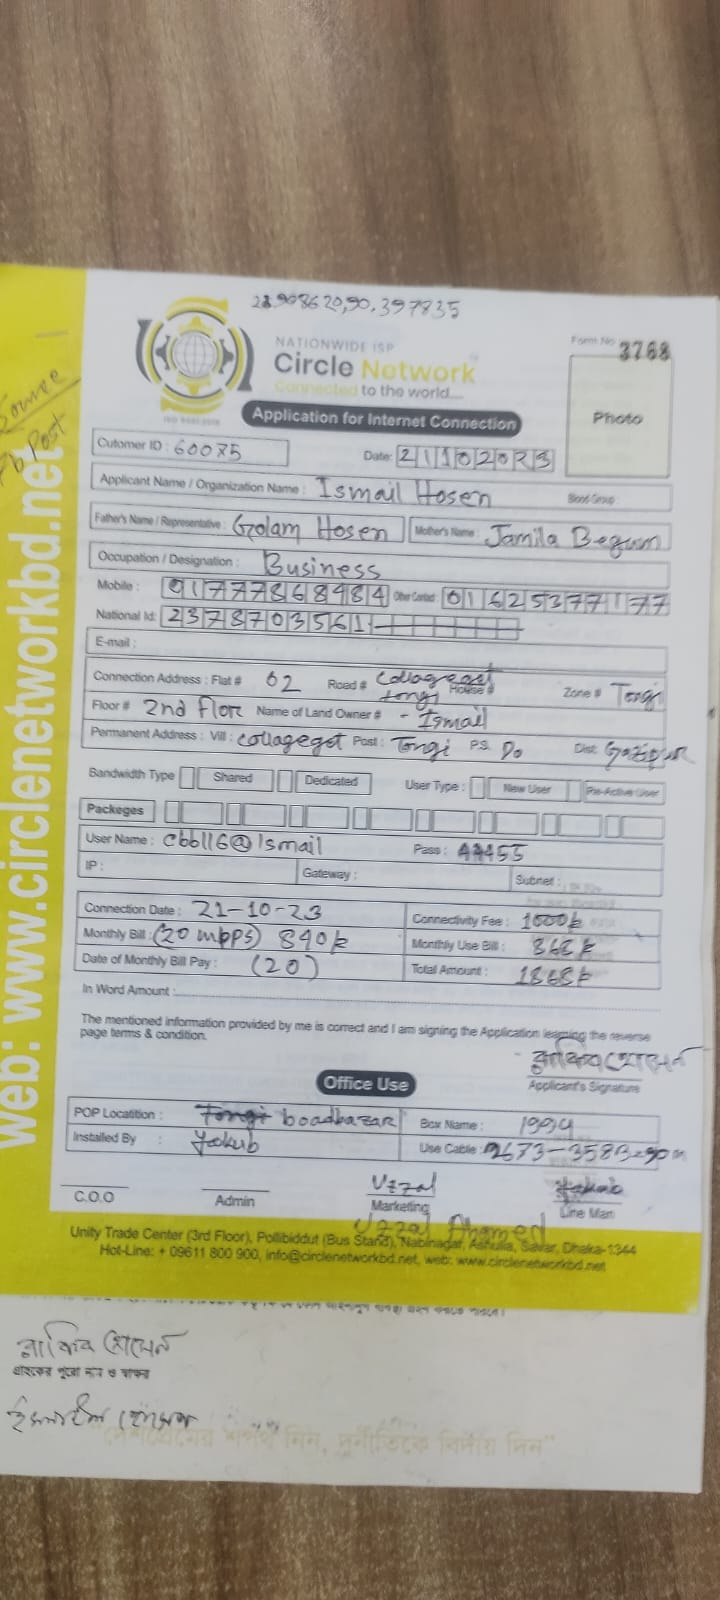 23.908620,90.397835
NATIONWIDE ISP
Circle Network
Connected to the world....
ISO 9001:2015
Form No 3768
Photo
Application for Internet Connection
Source
Fb Post
web: www.circlenetworkbd.net
Cutomer ID : 60075
Date: 21102023
Applicant Name / Organization Name : Ismail Hosen
Blood Group :
Father's Name / Representative : Golam Hosen Mother's Name : Jamila Begum
Occupation / Designation : Business
Mobile : 01777868484 Other Contact : 01625377177
National Id: 2378703561
E-mail :
Connection Address : Flat # 02 Road # Collagegat Tongi House # Zone # Tongi
Floor # 2nd Flor Name of Land Owner # - Ismail
Permanent Address : Vill : Collagegat Post : Tongi P.S. Do Dist: Gazipur
Bandwidth Type Shared Dedicated User Type : New User Pre-Active User
Packeges
User Name : cbbl16@Ismail Pass : 44455
IP : Gateway : Subnet :
Connection Date : 21-10-23 Connectivity Fee : 1000৳
Monthly Bill : (20 mbps) 840৳ Monthly Use Bill : 868৳
Date of Monthly Bill Pay : (20) Total Amount : 1868৳
In Word Amount :
The mentioned information provided by me is correct and I am signing the Application learning the reverse
page terms & condition.
Applicant's Signature
Office Use
POP Locatition : Tongi boadbazar Box Name : 1994
Installed By : Yeakub Use Cable :
C.O.O Admin Uzzal Marketing Yeakub Line Man
Uzzal Ahamed
Unity Trade Center (3rd Floor), Pollibiddut (Bus Stand), Nabinagar, Ashulia, Savar, Dhaka-1344
Hot-Line: + 09611 800 900, info@circlenetworkbd.net, web: www.circlenetworkbd.net
গ্রাহকের পুরো নাম ও স্বাক্ষর
ইসমাইল হোসেন
"দেশপ্রেমের শপথ নিন, দুর্নীতিকে বিদায় দিন"